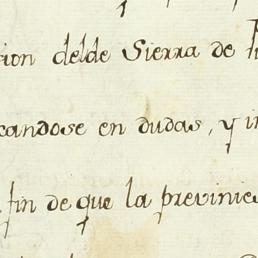 cion desde Sierra de
candose en dudas, y
fin de que la previnies